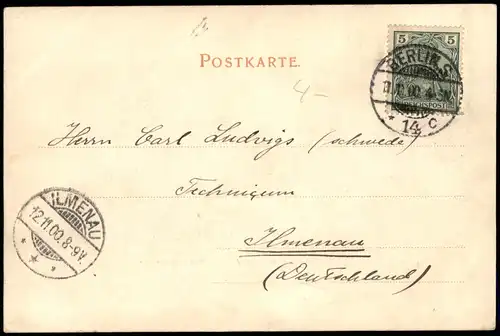 POSTKARTE.
5 5
REICHSPOST
BERLIN.S.
11.11.00. 4-5N.
* 14 c
4-
Herrn Carl Ludvigs (schwede)
Technigum
Ilmenau
(Deutschland)
ILMENAU
12.11.00.8-9V.
* * *